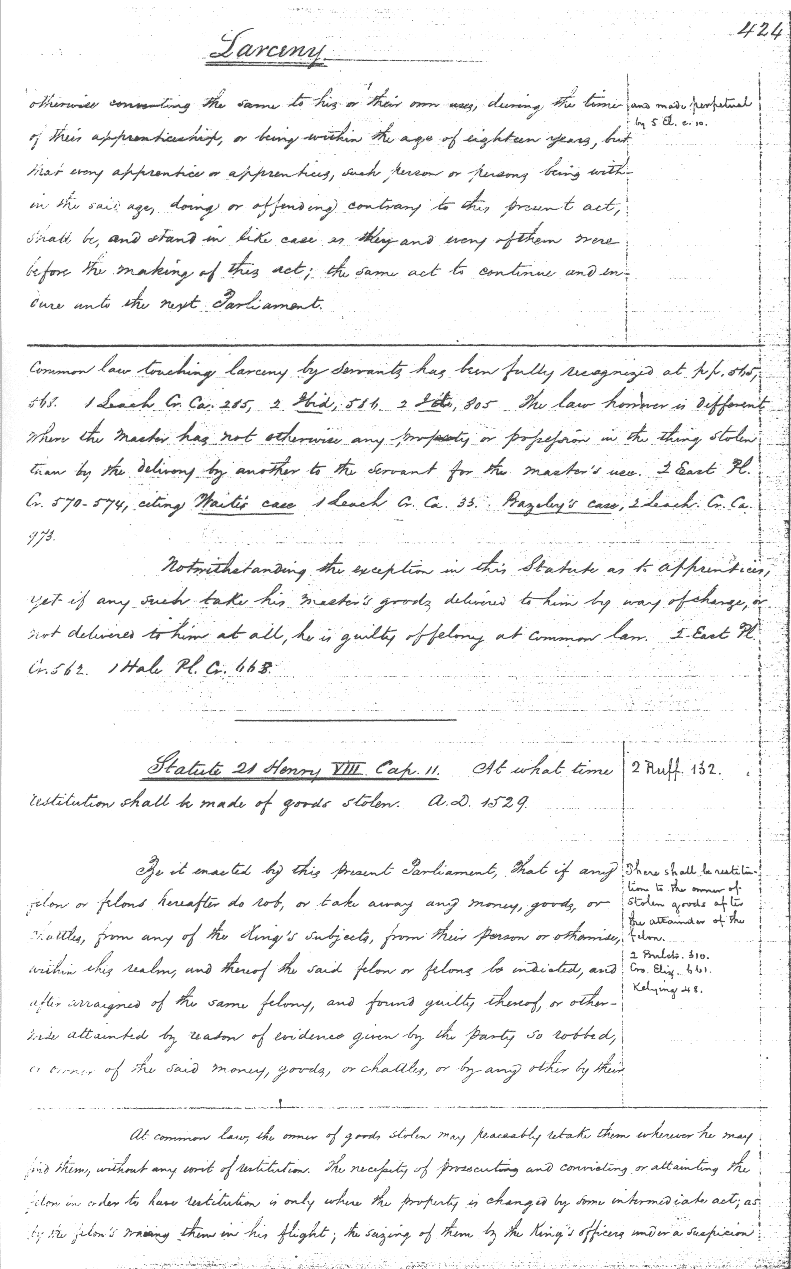 424
Larceny
otherwise converting the same to his or their own uses, during the time
of their apprenticeship, or being within the age of eighteen years, but
that every apprentice or apprentices, such person or persons being with-
in the said age, doing or offending contrary to this present act,
shall be, and stand in like case as they and every of them were
before the making of this act; the same act to continue and en-
dure unto the next Parliament.
and made perpetual
by 5 El. c. 10.
Common law touching larceny by servants has been fully recognized at pp. 565,
568. 1 Leach Cr. Ca. 285, 2 Ibid, 586 2 805 The law however is different
where the Master has not otherwise any property or possession in the thing stolen
than by the delivery by another to the servant for the master's use. 2 East Pl.
Cr. 570-574, citing Waite's case 1 Leach Cr. Ca. 33. Bazeley's case, 2 Leach. Cr. Ca.
973.
Notwithstanding the exception in this Statute as to apprentices,
yet if any such take his master's goods delivered to him by way of charge, or
not delivered to him at all, he is guilty of felony at common law. 2 East Pl.
Cr. 562. 1 Hale Pl. Cr. 668.
Statute 21 Henry VIII Cap. 11. At what time
restitution shall be made of goods stolen. A.D. 1529.
2 Ruff. 132.
Be it enacted by this present Parliament, That if any
felon or felons hereafter do rob, or take away any money, goods, or
chattles, from any of the King's subjects, from their person or otherwise,
within this realm, and thereof the said felon or felons be indicted, and
after arraigned of the same felony, and found guilty thereof, or other-
wise attainted by reason of evidence given by the party so robbed,
or owner of the said money, goods, or chattles, or by any other by their
There shall be restitu-
tion to the owner of
stolen goods after
the attainder of the
felon.
2 Bulst. 310.
Cro. Eliz. 661.
Kelying 48.
At common law, the owner of goods stolen may peaceably retake them wherever he may
find them, without any writ of restitution. The necessity of prosecuting and convicting or attainting the
felon in order to have restitution is only where the property is changed by some intermediate act; as
by the felon's waving them in his flight; the seizing of them by the King's officers under a suspicion